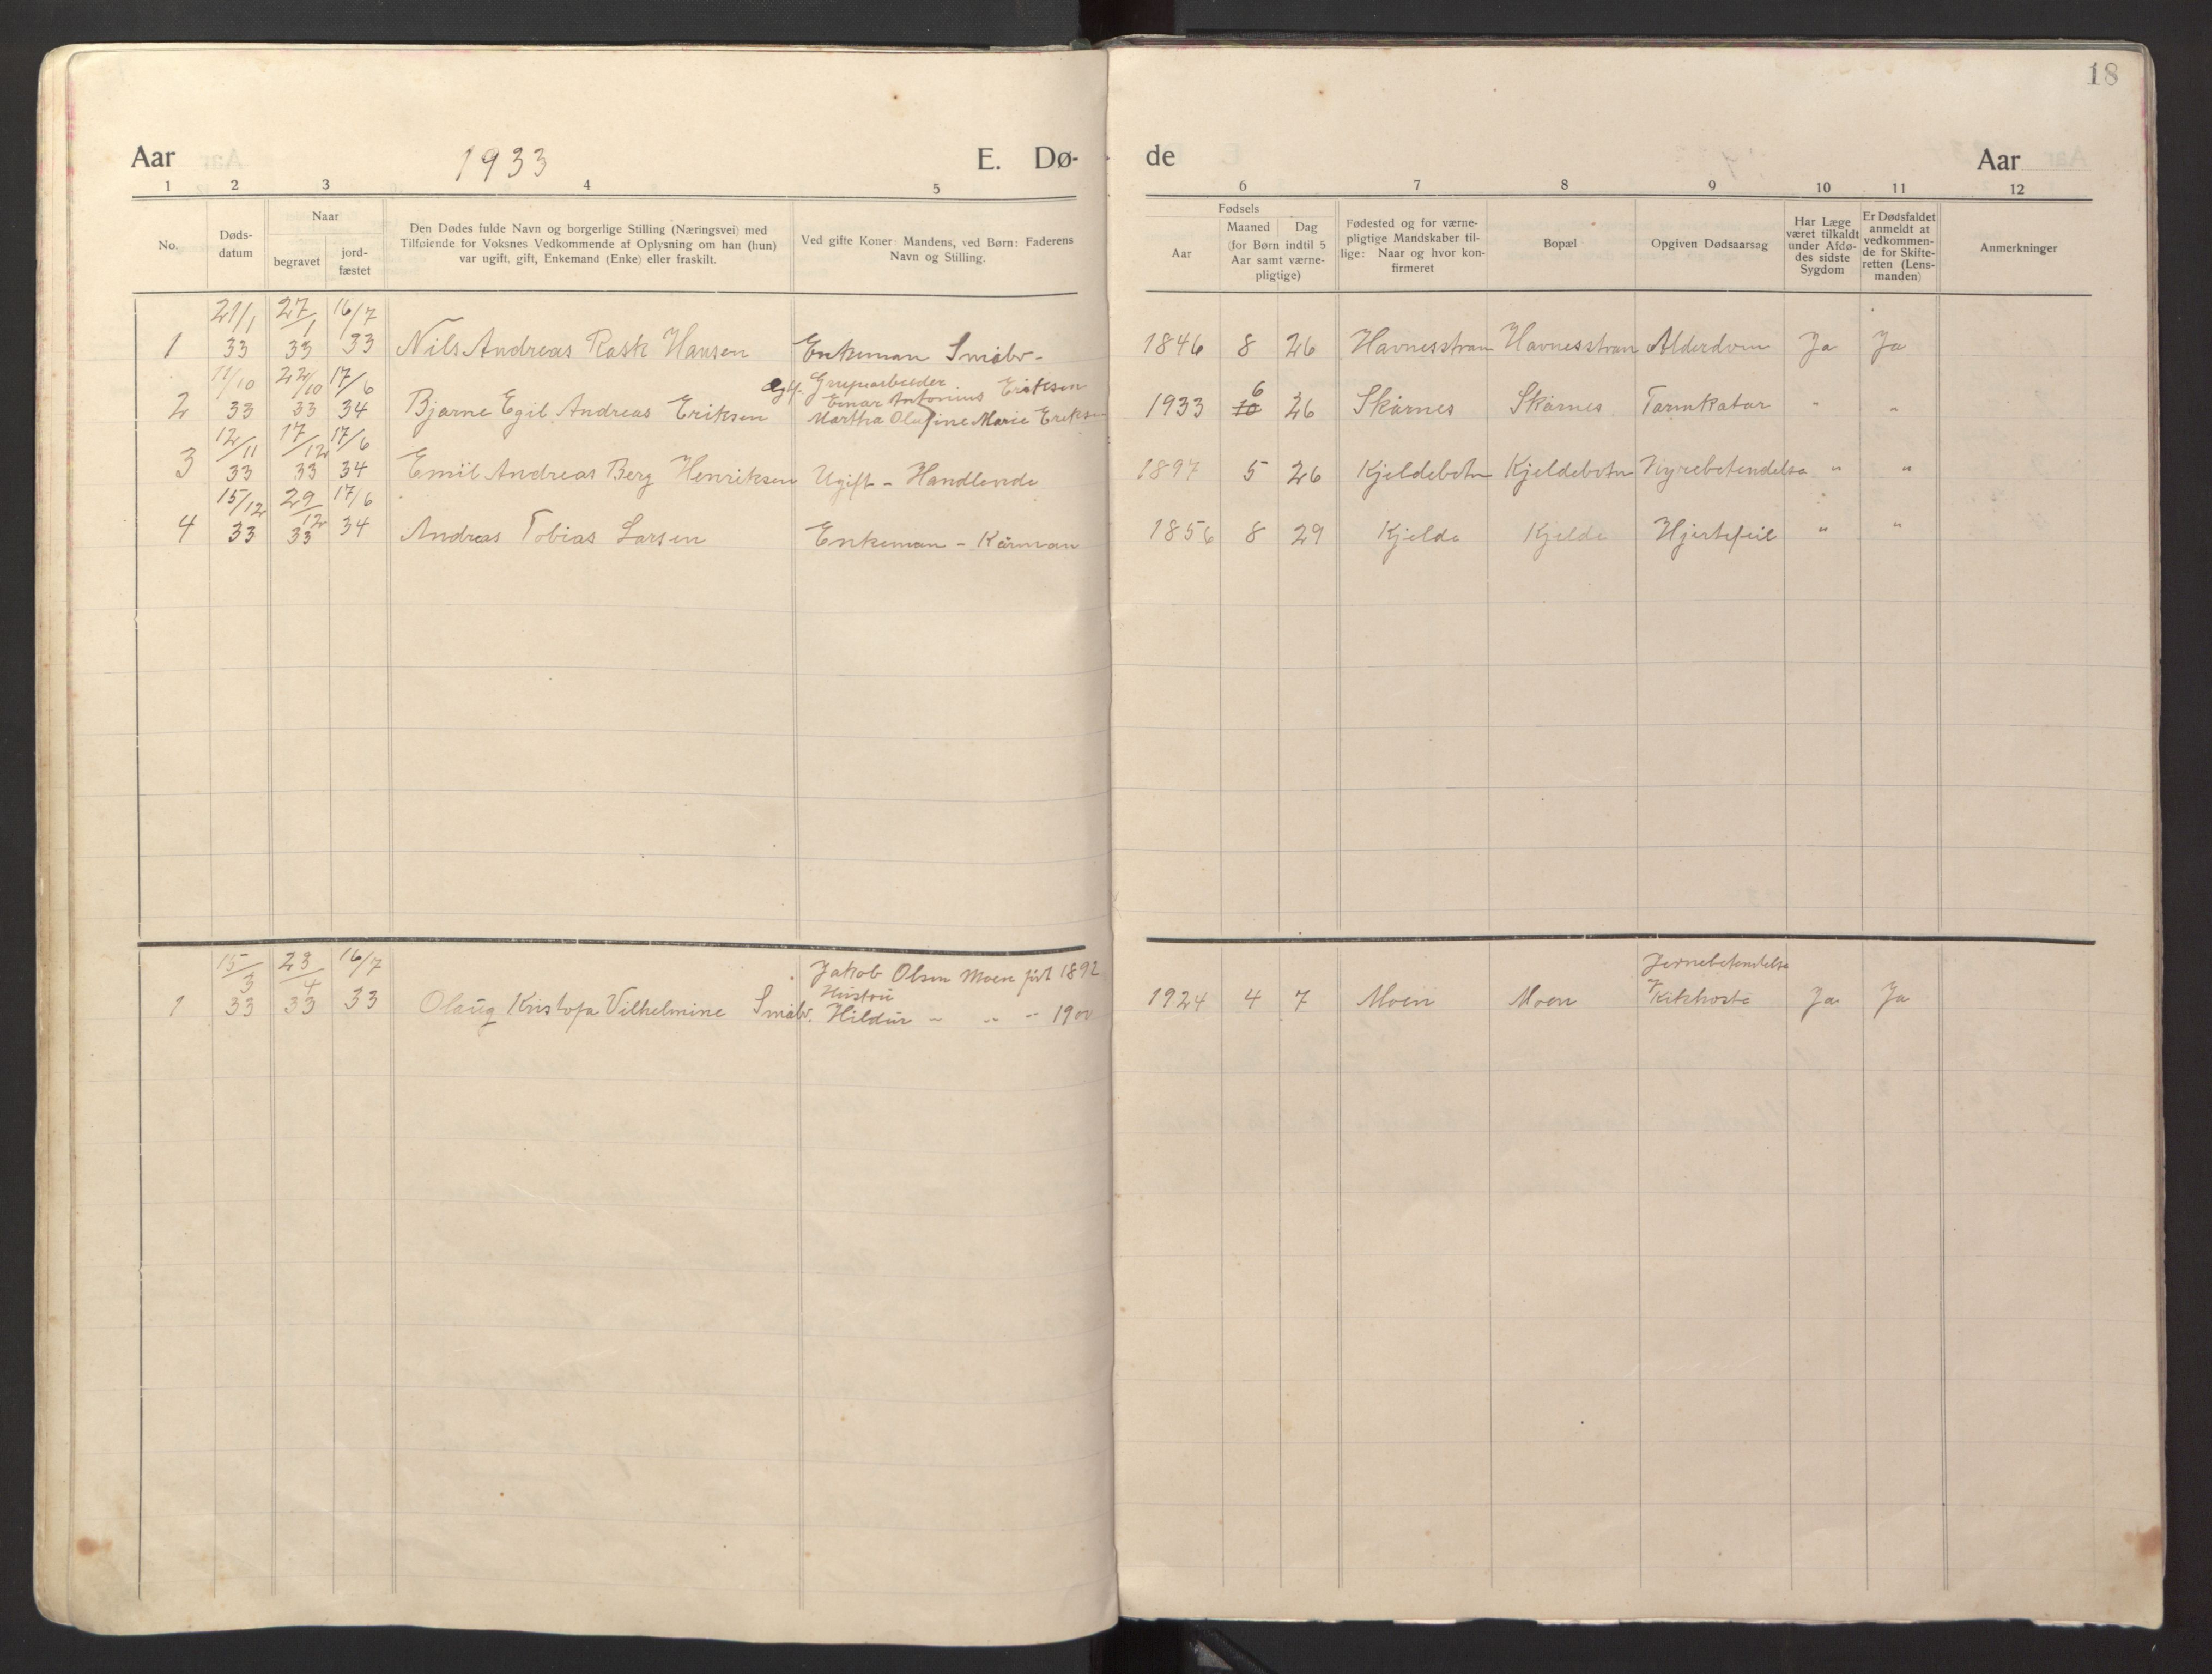 18
Aar 1933 E. Dø- de Aar
1 2 3 4 5 6 7 8 9 10 11 12
No.
Døds-
datum
Naar
begravet
jord-
fæstet
Den Dødes fulde Navn og borgerlige Stilling (Næringsvei) med
Tilføiende for Voksnes Vedkommende af Oplysning om han (hun)
var ugift, gift, Enkemand (Enke) eller fraskilt.
Ved gifte Koner: Mandens, ved Børn: Faderens
Navn og Stilling.
Fødsels
Aar
Maaned Dag
(for Børn indtil 5
Aar samt værne-
pligtige)
Fødested og for værne-
pligtige Mandskaber til-
lige: Naar og hvor kon-
firmeret
Bopæl
Opgiven Dødsaarsag
Har Læge
været tilkaldt
under Afdø-
des sidste
Sygdom
Er Dødsfaldet
anmeldt at
vedkommen-
de for Skifte-
retten (Lens-
manden)
Anmerkninger
21/1 27/1 16/7
1 33 33 33 Nils Andreas Rask Hansen Enkeman Småbr- 1846 8 26 Havnesstran Havnesstran Alderdom Ja Ja
11/10 22/10 17/6 Eriksen 6
2 33 33 34 Bjarne Egil Andreas Eriksen Einar Antonius 1933 10 26 Skarnes Skarnes Tarmkatar " "
Martha Olufine Marie Eriksen
12/11 17/12 17/6
3 33 33 34 Emil Andreas Berg Henriksen Ugift - Handlende 1897 5 26 Kjeldebotn Kjeldebotn Nyrebetendelse " "
15/12 29/12 17/6
4 33 33 34 Andreas Tobias Larsen Enkeman - Kårman 1856 8 29 Kjelde Kjelde Hjertefeil " "
15/3 23/4 16/7 Jakob Olsen Moen født 1892
Hustru
1 33 33 33 Olaug Kristofa Vilhelmine Småbr. Hildur - " " 1900 1924 4 7 Moen Moen Kikhoste Ja Ja